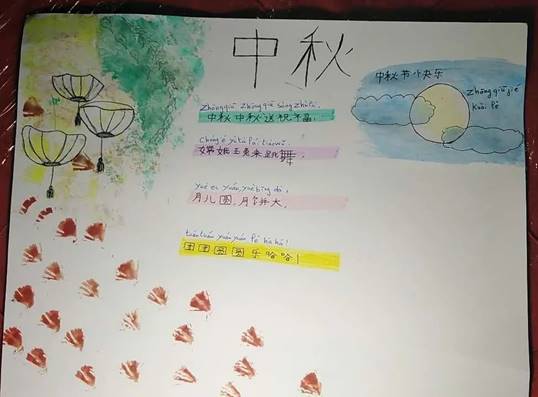 中秋
Zhōngqiū zhōngqiū sòng zhùfú,
中秋中秋送祝福,
嫦娥玉兔来跳舞。
yuè er yuán, yuèbǐng dà,
月儿圆,月饼大,
tuántuán yuányuán lè hā hā!
团团圆圆乐哈哈!
中秋节快乐
Zhōngqiūjié
kuài lè